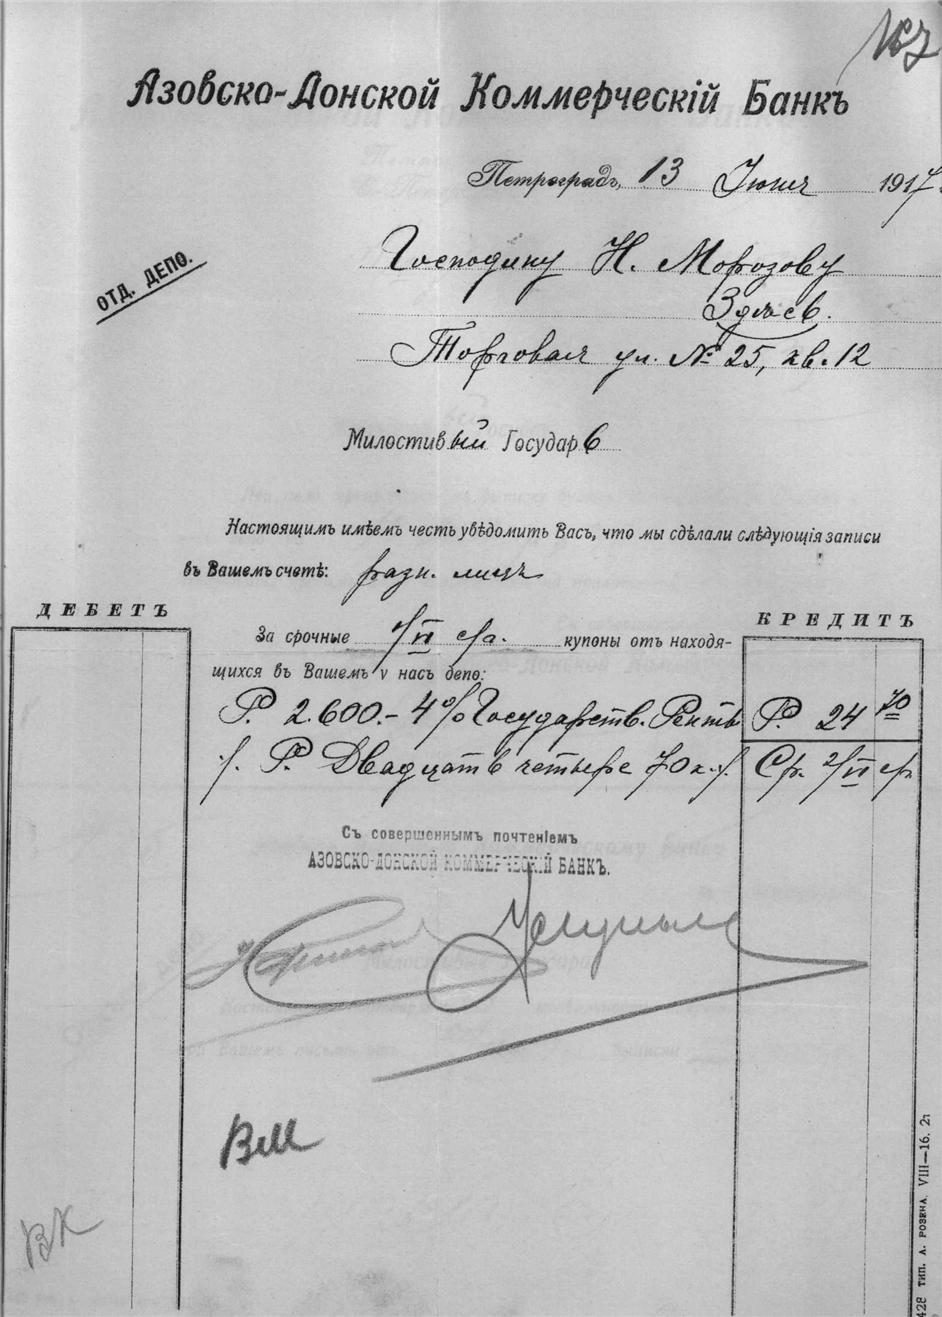 167
Азовско-Донской Коммерческій Банкъ
Петроградъ, 13 Июня 1917.
ОТД. ДЕПО.
Господину Н. Морозову
Здѣсь.
Торговая ул. № 25, кв. 12
Милостивый Государь
Настоящимъ имѣемъ честь увѣдомить Васъ, что мы сдѣлали слѣдующія записи
въ Вашемъ счетѣ: разн. лицъ
ДЕБЕТЪ
КРЕДИТЪ
За срочные 1/VI с/г. купоны отъ находя-
щихся въ Вашемъ у насъ депо:
Р. 2.600.- 4% Государств. Ренты Р. 24 70
/. Р. Двадцать четыре 70 к. /. Ср. 2/VI с/г
Съ совершеннымъ почтеніемъ
АЗОВСКО-ДОНСКОЙ КОММЕРЧЕСКІЙ БАНКЪ.
ВМ
ВК
428 ТИП. А. РОЗЕНА. VIII—16. 2т